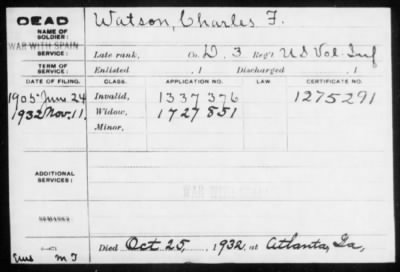 DEAD
NAME OF SOLDIER: Watson, Charles F.
WAR WITH SPAIN
SERVICE: Late rank, Co. D. 3 Reg't U S Vol. Inf
TERM OF SERVICE: Enlisted , 1 Discharged , 1
DATE OF FILING. CLASS. APPLICATION NO. LAW CERTIFICATE NO.
1905 June 24 Invalid, 1337376 1275291
1932 Nov. 11. Widow, 1727851
Minor,
ADDITIONAL SERVICES:
WAR WITH
REMARKS:
Died Oct 25, , 1932, at Atlanta, Ga,
M I